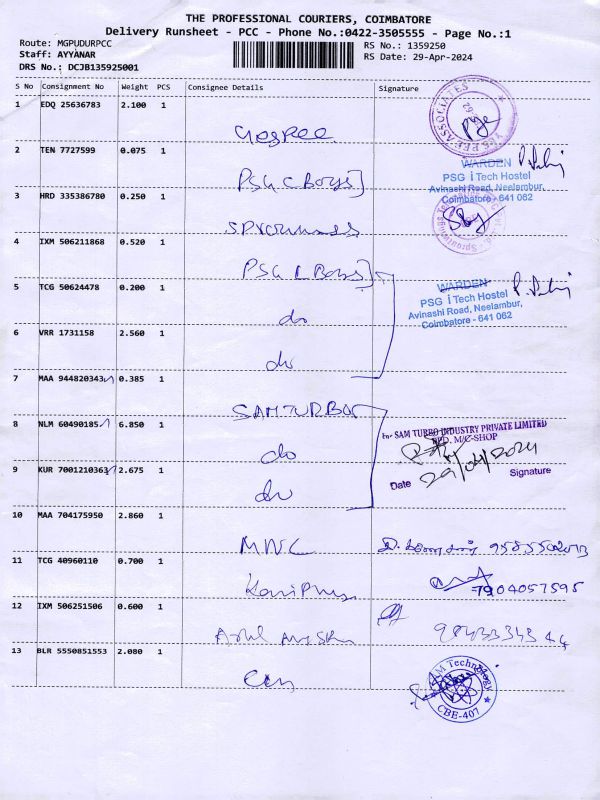 THE PROFESSIONAL COURIERS, COIMBATORE
Delivery Runsheet - PCC - Phone No.:0422-3505555 - Page No.:1
Route: MGPUDURPCC
Staff: AYYANAR
DRS No.: DCJB135925001
RS No.: 1359250
RS Date: 29-Apr-2024
S No Consignment No Weight PCS Consignee Details Signature
1 EDQ 25636783 2.100 1
YES PEE ASSOCIATES
2 TEN 7727599 0.075 1
PSG C Boys]
WARDEN
PSG i Tech Hostel
Avinashi Road, Neelambur,
Coimbatore - 641 062
3 HRD 335386780 0.250 1
4 IXM 506211868 0.520 1
PSG Boys]
5 TCG 50624478 0.200 1
do
WARDEN
PSG i Tech Hostel
Avinashi Road, Neelambur,
Coimbatore - 641 062
6 VRR 1731158 2.560 1
do
7 MAA 944820343 0.385 1
SAM TURBO
8 NLM 60490185 6.850 1
do
For SAM TURBO INDUSTRY PRIVATE LIMITED
M/C-SHOP
29/04/2024
Date Signature
9 KUR 7001210363 2.675 1
do
10 MAA 704175950 2.860 1
MNC
11 TCG 40960110 0.700 1
7904057595
12 IXM 506251506 0.600 1
13 BLR 5550851553 2.080 1
Technology
CBE-407